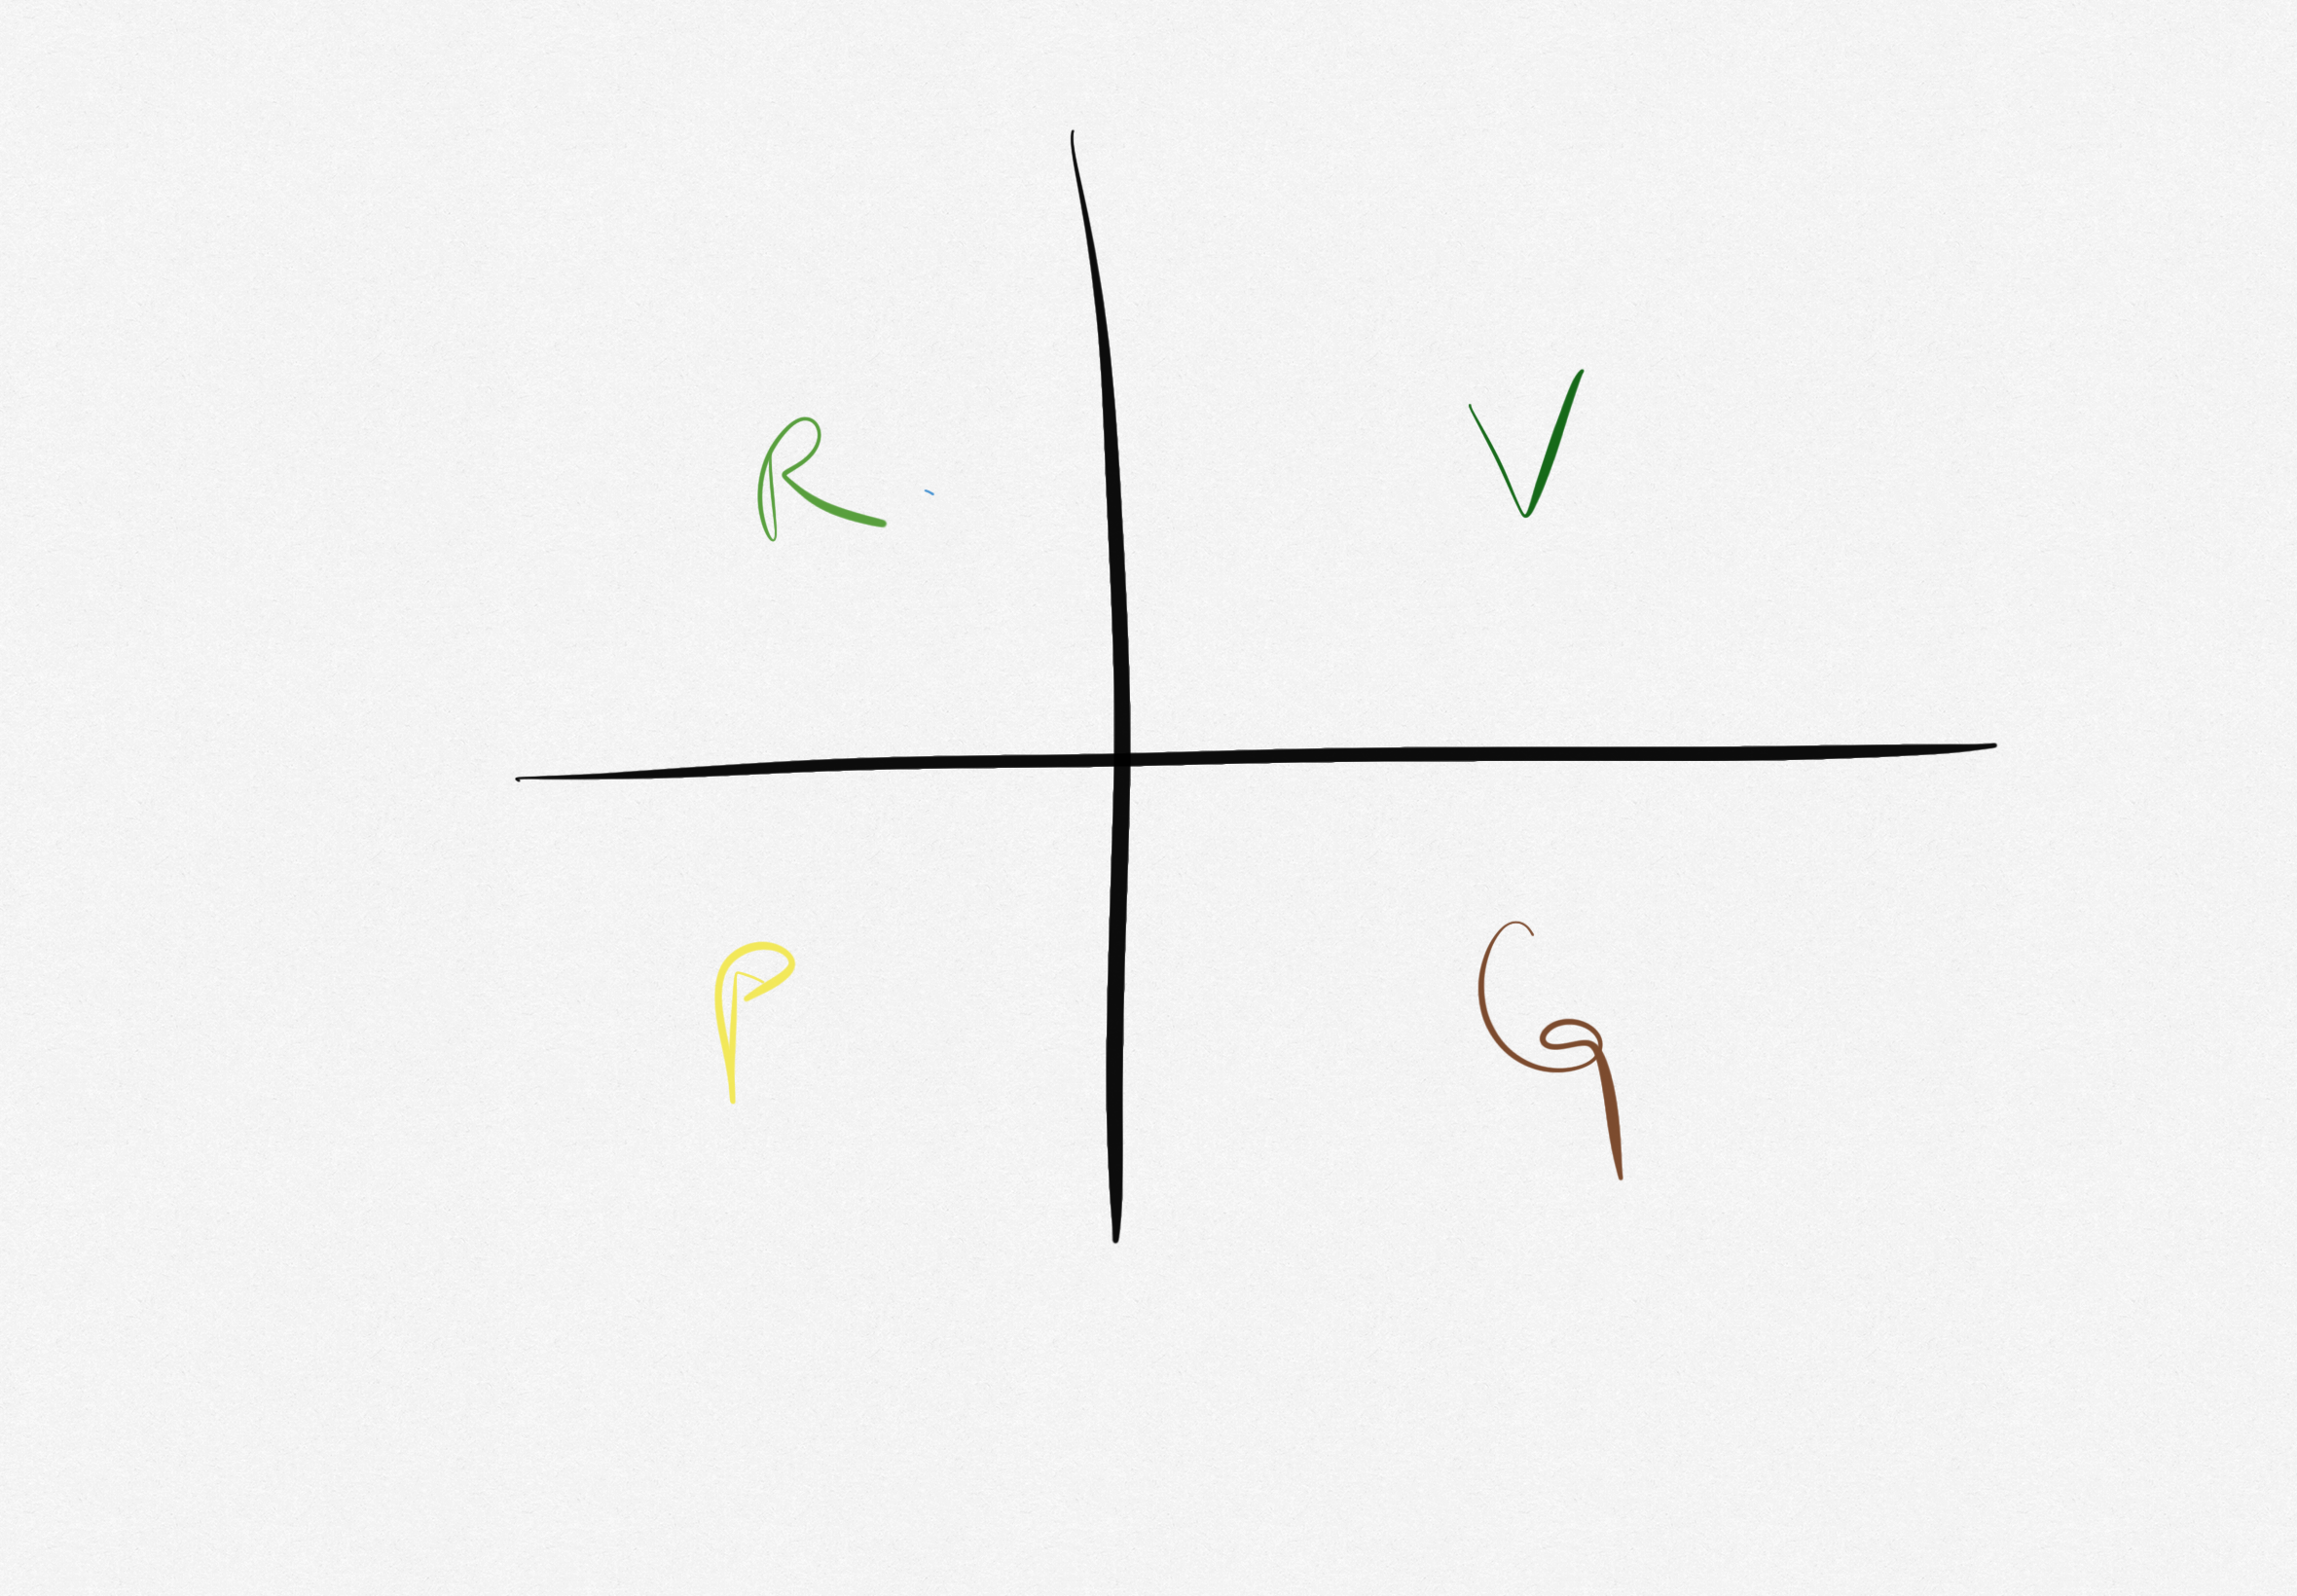 R V
P G